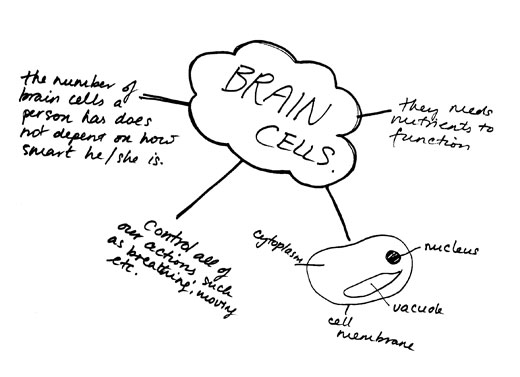 BRAIN
CELLS.
the number of
brain cells a
person has does
not depent on how
smart he/she is.
they needs
nutrients to
function
Control all of
our actions such
as breathing, moving
etc.
cytoplasm
nucleus
vacuole
cell
membrane